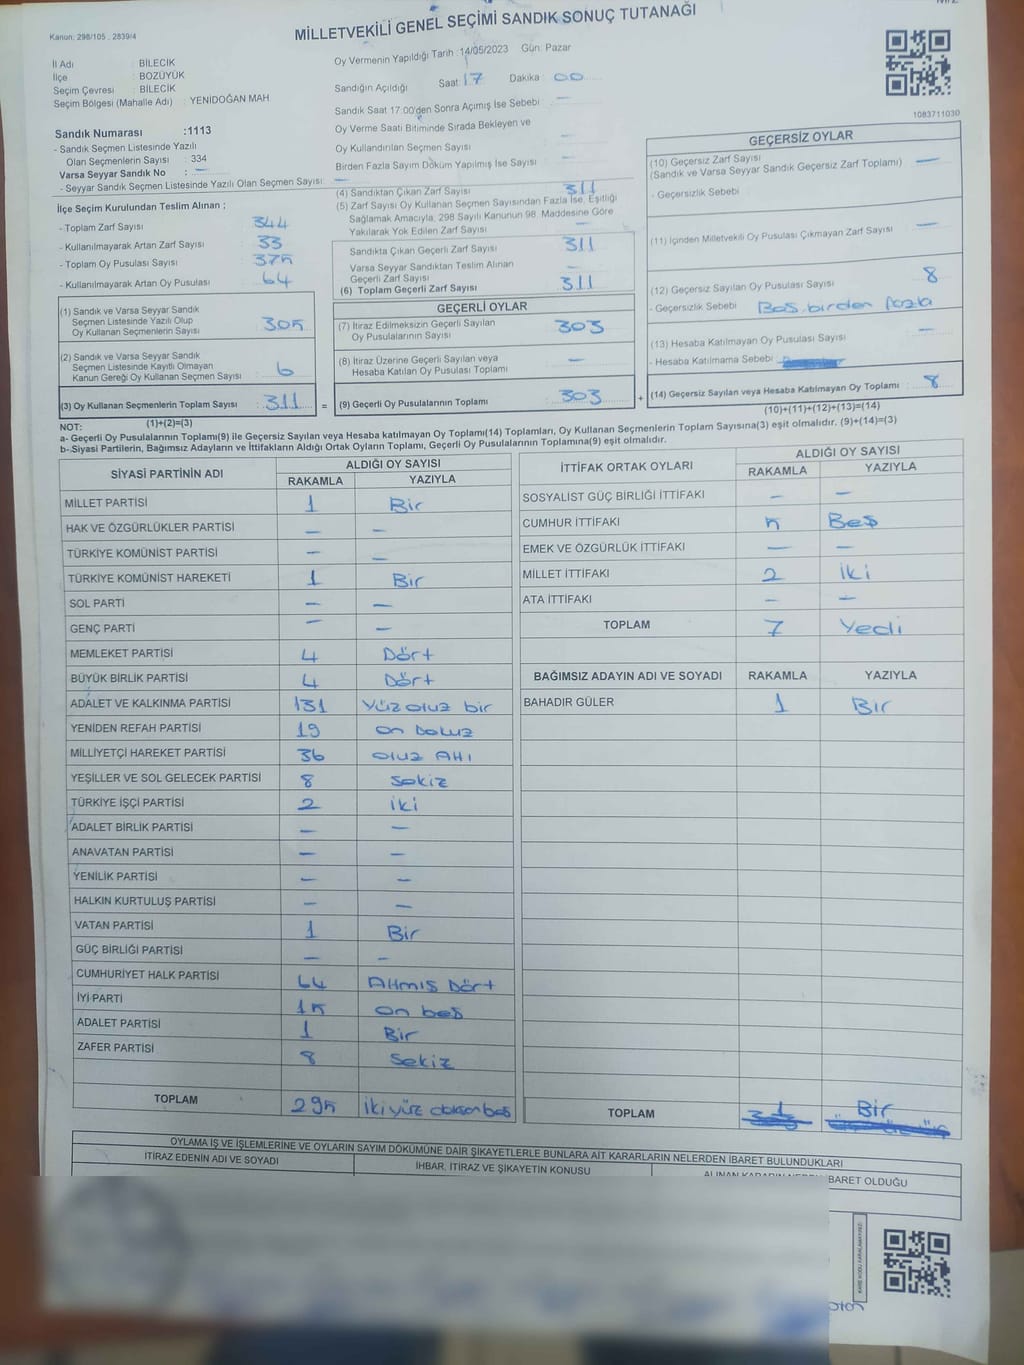 MİLLETVEKİLİ GENEL SEÇİMİ SANDIK SONUÇ TUTANAĞI
Kanun: 298/105 , 2839/4
İl Adı : BİLECİK
İlçe : BOZÜYÜK
Seçim Çevresi : BİLECİK
Seçim Bölgesi (Mahalle Adı) : YENİDOĞAN MAH
Oy Vermenin Yapıldığı Tarih :14/05/2023 Gün: Pazar
Sandığın Açıldığı Saat: 17 Dakika : 00
Sandık Saat 17:00'den Sonra Açımış İse Sebebi : —
Oy Verme Saati Bitiminde Sırada Bekleyen ve
Oy Kullandırılan Seçmen Sayısı : —
Birden Fazla Sayım Döküm Yapılmış İse Sayısı : —
1083711030
Sandık Numarası :1113
- Sandık Seçmen Listesinde Yazılı
Olan Seçmenlerin Sayısı : 334
Varsa Seyyar Sandık No : —
- Seyyar Sandık Seçmen Listesinde Yazılı Olan Seçmen Sayısı: —
İlçe Seçim Kurulundan Teslim Alınan ;
- Toplam Zarf Sayısı : 344
- Kullanılmayarak Artan Zarf Sayısı : 33
- Toplam Oy Pusulası Sayısı : 375
- Kullanılmayarak Artan Oy Pusulası : 64
(1) Sandık ve Varsa Seyyar Sandık
Seçmen Listesinde Yazılı Olup
Oy Kullanan Seçmenlerin Sayısı : 305
(2) Sandık ve Varsa Seyyar Sandık
Seçmen Listesinde Kayıtlı Olmayan
Kanun Gereği Oy Kullanan Seçmen Sayısı : 6
(3) Oy Kullanan Seçmenlerin Toplam Sayısı : 311
(1)+(2)=(3)
(4) Sandıktan Çıkan Zarf Sayısı : 311
(5) Zarf Sayısı Oy Kullanan Seçmen Sayısından Fazla İse, Eşitliği
Sağlamak Amacıyla, 298 Sayılı Kanunun 98. Maddesine Göre
Yakılarak Yok Edilen Zarf Sayısı : —
Sandıkta Çıkan Geçerli Zarf Sayısı : 311
Varsa Seyyar Sandıktan Teslim Alınan
Geçerli Zarf Sayısı : —
(6) Toplam Geçerli Zarf Sayısı : 311
GEÇERLİ OYLAR
(7) İtiraz Edilmeksizin Geçerli Sayılan
Oy Pusulalarının Sayısı : 303
(8) İtiraz Üzerine Geçerli Sayılan veya
Hesaba Katılan Oy Pusulası Toplamı : —
= (9) Geçerli Oy Pusulalarının Toplamı : 303
GEÇERSİZ OYLAR
(10) Geçersiz Zarf Sayısı : —
(Sandık ve Varsa Sandık Geçersiz Zarf Toplamı)
- Geçersizlik Sebebi
(11) İçinden Milletvekili Oy Pusulası Çıkmayan Zarf Sayısı : —
(12) Geçersiz Sayılan Oy Pusulası Sayısı : 8
- Geçersizlik Sebebi : Bas. birden fazla
(13) Hesaba Katılmayan Oy Pusulası Sayısı : —
- Hesaba Katılmama Sebebi :
+ (14) Geçersiz Sayılan veya Hesaba Katılmayan Oy Toplamı : 8
(10)+(11)+(12)+(13)=(14)
NOT:
a- Geçerli Oy Pusulalarının Toplamı(9) ile Geçersiz Sayılan veya Hesaba katılmayan Oy Toplamı(14) Toplamları, Oy Kullanan Seçmenlerin Toplam Sayısına(3) eşit olmalıdır. (9)+(14)=(3)
b- Siyasi Partilerin, Bağımsız Adayların ve İttifakların Aldığı Ortak Oyların Toplamı, Geçerli Oy Pusulalarının Toplamına(9) eşit olmalıdır.
SİYASİ PARTİNİN ADI ALDIĞI OY SAYISI
RAKAMLA YAZIYLA
MİLLET PARTİSİ 1 Bir
HAK VE ÖZGÜRLÜKLER PARTİSİ — —
TÜRKİYE KOMÜNİST PARTİSİ — —
TÜRKİYE KOMÜNİST HAREKETİ 1 Bir
SOL PARTİ — —
GENÇ PARTİ — —
MEMLEKET PARTİSİ 4 Dört
BÜYÜK BİRLİK PARTİSİ 4 Dört
ADALET VE KALKINMA PARTİSİ 131 Yüz otuz bir
YENİDEN REFAH PARTİSİ 19 on Dokuz
MİLLİYETÇİ HAREKET PARTİSİ 36 otuz Altı
YEŞİLLER VE SOL GELECEK PARTİSİ 8 Sekiz
TÜRKİYE İŞÇİ PARTİSİ 2 iki
ADALET BİRLİK PARTİSİ — —
ANAVATAN PARTİSİ — —
YENİLİK PARTİSİ — —
HALKIN KURTULUŞ PARTİSİ — —
VATAN PARTİSİ 1 Bir
GÜÇ BİRLİĞİ PARTİSİ — —
CUMHURİYET HALK PARTİSİ 64 Altmış Dört
İYİ PARTİ 15 on beş
ADALET PARTİSİ 1 Bir
ZAFER PARTİSİ 8 Sekiz
TOPLAM 295 İkiyüz doksan beş
İTTİFAK ORTAK OYLARI ALDIĞI OY SAYISI
RAKAMLA YAZIYLA
SOSYALİST GÜÇ BİRLİĞİ İTTİFAKI — —
CUMHUR İTTİFAKI 5 Beş
EMEK VE ÖZGÜRLÜK İTTİFAKI — —
MİLLET İTTİFAKI 2 İki
ATA İTTİFAKI — —
TOPLAM 7 Yedi
BAĞIMSIZ ADAYIN ADI VE SOYADI RAKAMLA YAZIYLA
BAHADIR GÜLER 1 Bir
TOPLAM 1 Bir
OYLAMA İŞ VE İŞLEMLERİNE VE OYLARIN SAYIM DÖKÜMÜNE DAİR ŞİKAYETLERLE BUNLARA AİT KARARLARIN NELERDEN İBARET BULUNDUKLARI
İTİRAZ EDENİN ADI VE SOYADI
İHBAR, İTİRAZ VE ŞİKAYETİN KONUSU
BARET OLDUĞU